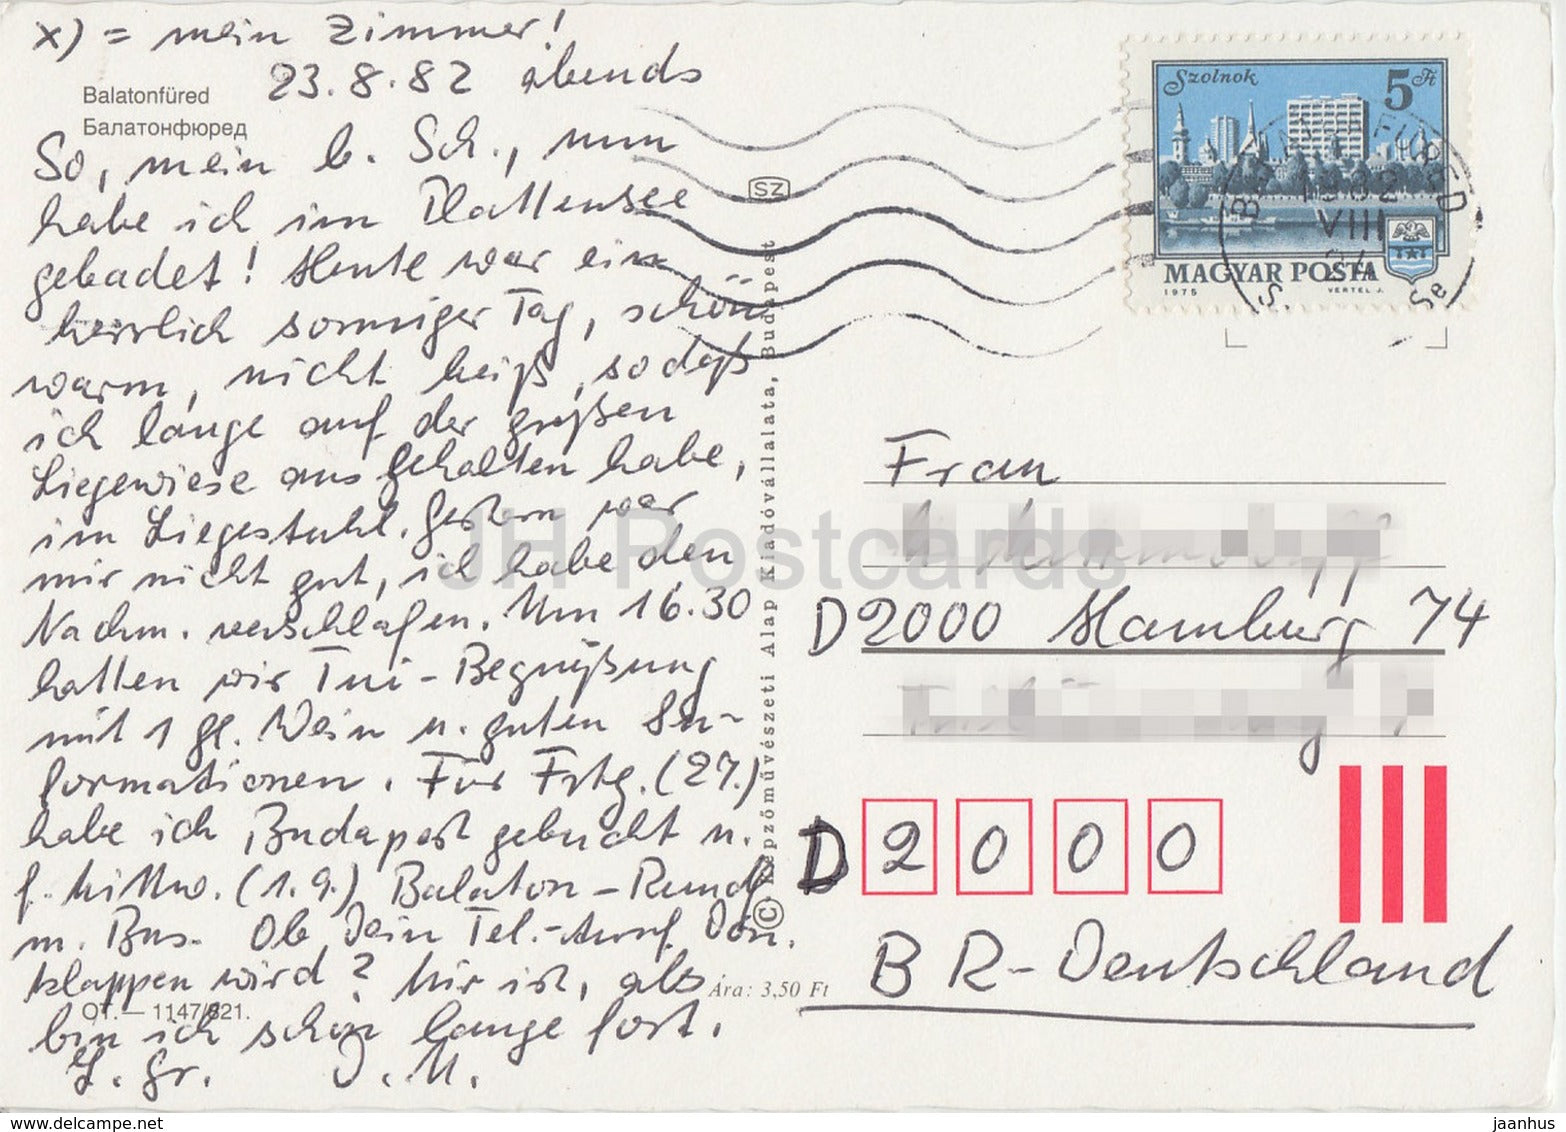 x) = mein Zimmer!
23.8.82 abends
Balatonfüred
Балатонфюред
So, mein l. Sch., nun
habe ich im Plattensee
gebadet! Heute war ein
herrlich sonniger Tag, schön
warm, nicht heiß, sodaß
ich lange auf der großen
Liegewiese ausgehalten habe,
im Liegestuhl. Gestern war
mir nicht gut, ich habe den
Nachm. verschlafen. Um 16.30
hatten wir Tui-Begrüßung
mit 1 Gl. Wein u. guten In-
formationen. Für Frtg. (27.)
habe ich Budapest gebucht u.
f. Mittw. (1.9.) Balaton-Rundf.
m. Bus. Ob Dein Tel.-Anruf Don.
klappen wird? Mir ist, als
bin ich schon lange fort.
L. Gr. D. M.
OT. — 1147/821.
Ára: 3,50 Ft
SZ
© Képzőművészeti Alap Kiadóvállalata, Budapest
Szolnok
5 Ft
MAGYAR POSTA
1975
VERTEL J.
1982
VIII
Frau
D 2000 Hamburg 74
D 2000
BR-Deutschland
JH Postcards
www.delcampe.net
jaanhus